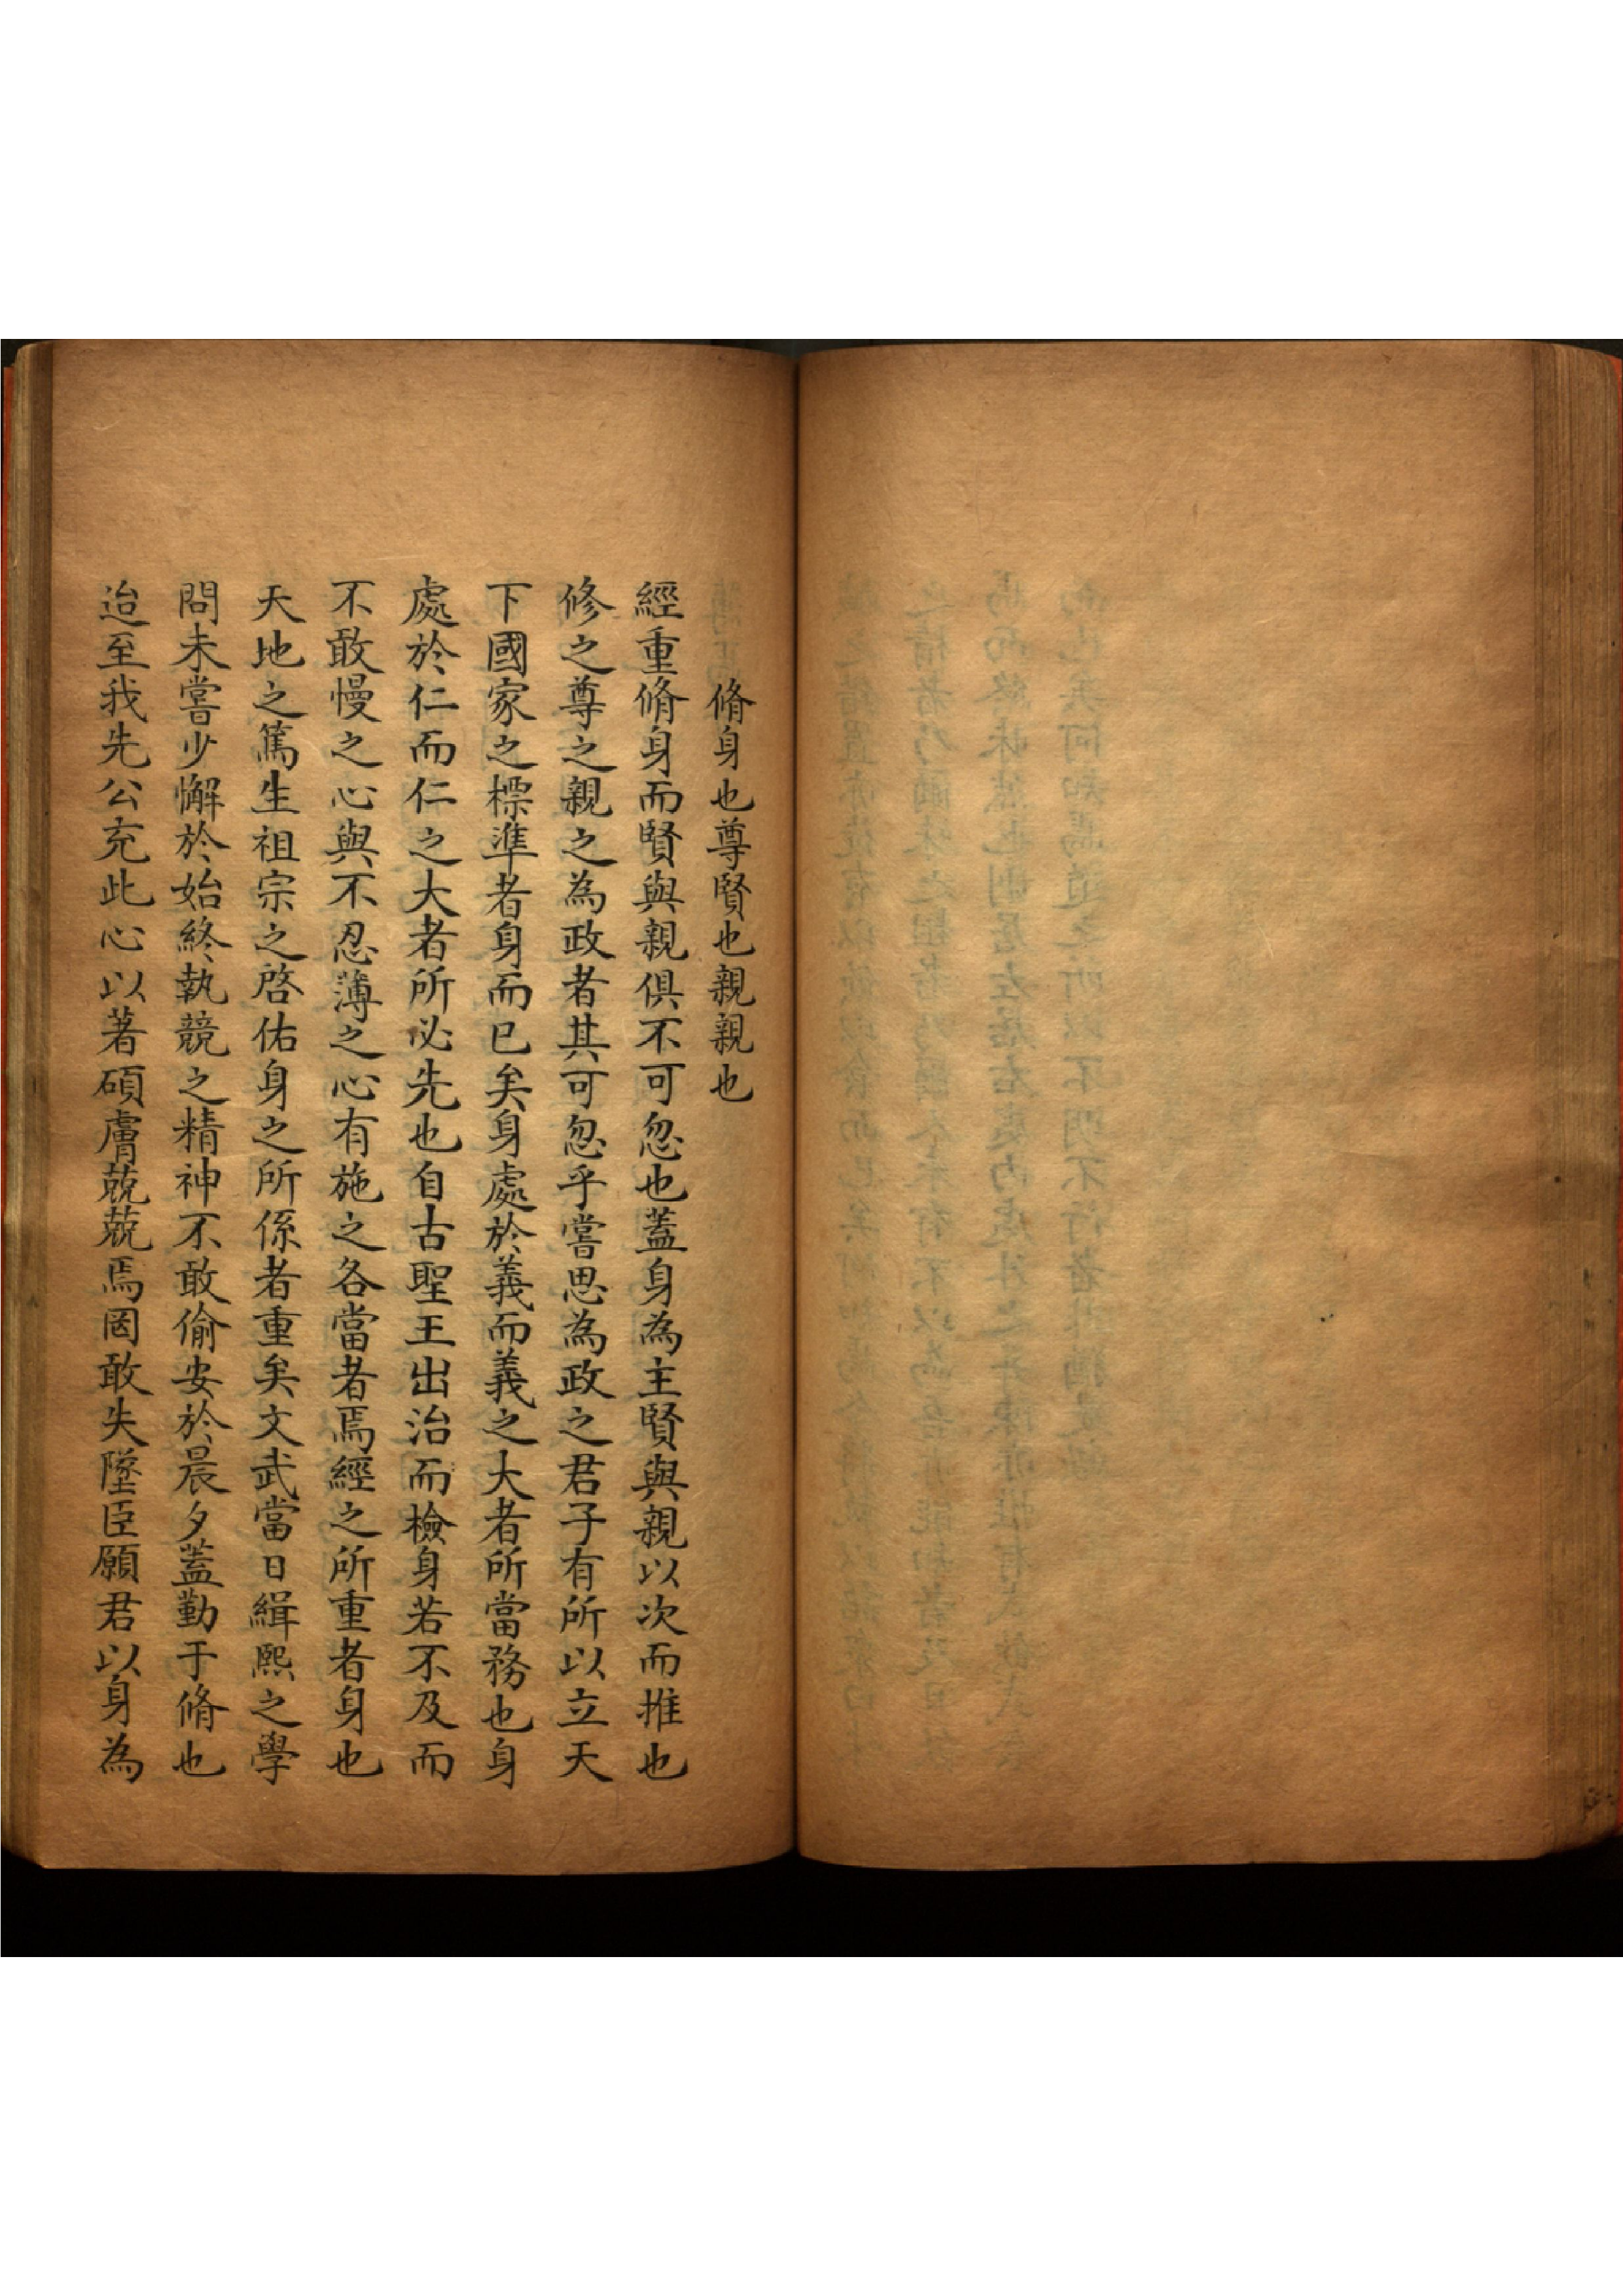 脩身也尊賢也親親也
經重脩身而賢與親俱不可忽也蓋身為主賢與親以次而推也
修之尊之親之為政者其可忽乎嘗思為政之君子有所以立天
下國家之標準者身而已矣身處於義而義之大者所當務也身
處於仁而仁之大者所必先也自古聖王出治而檢身若不及而
不敢慢之心與不忍薄之心有施之各當者焉經之所重者身也
天地之篤生祖宗之啓佑身之所係者重矣文武當日緝熙之學
問未嘗少懈於始終執競之精神不敢偷安於晨夕蓋勤于脩也
迨至我先公充此心以著碩膚兢兢焉罔敢失墜臣願君以身為